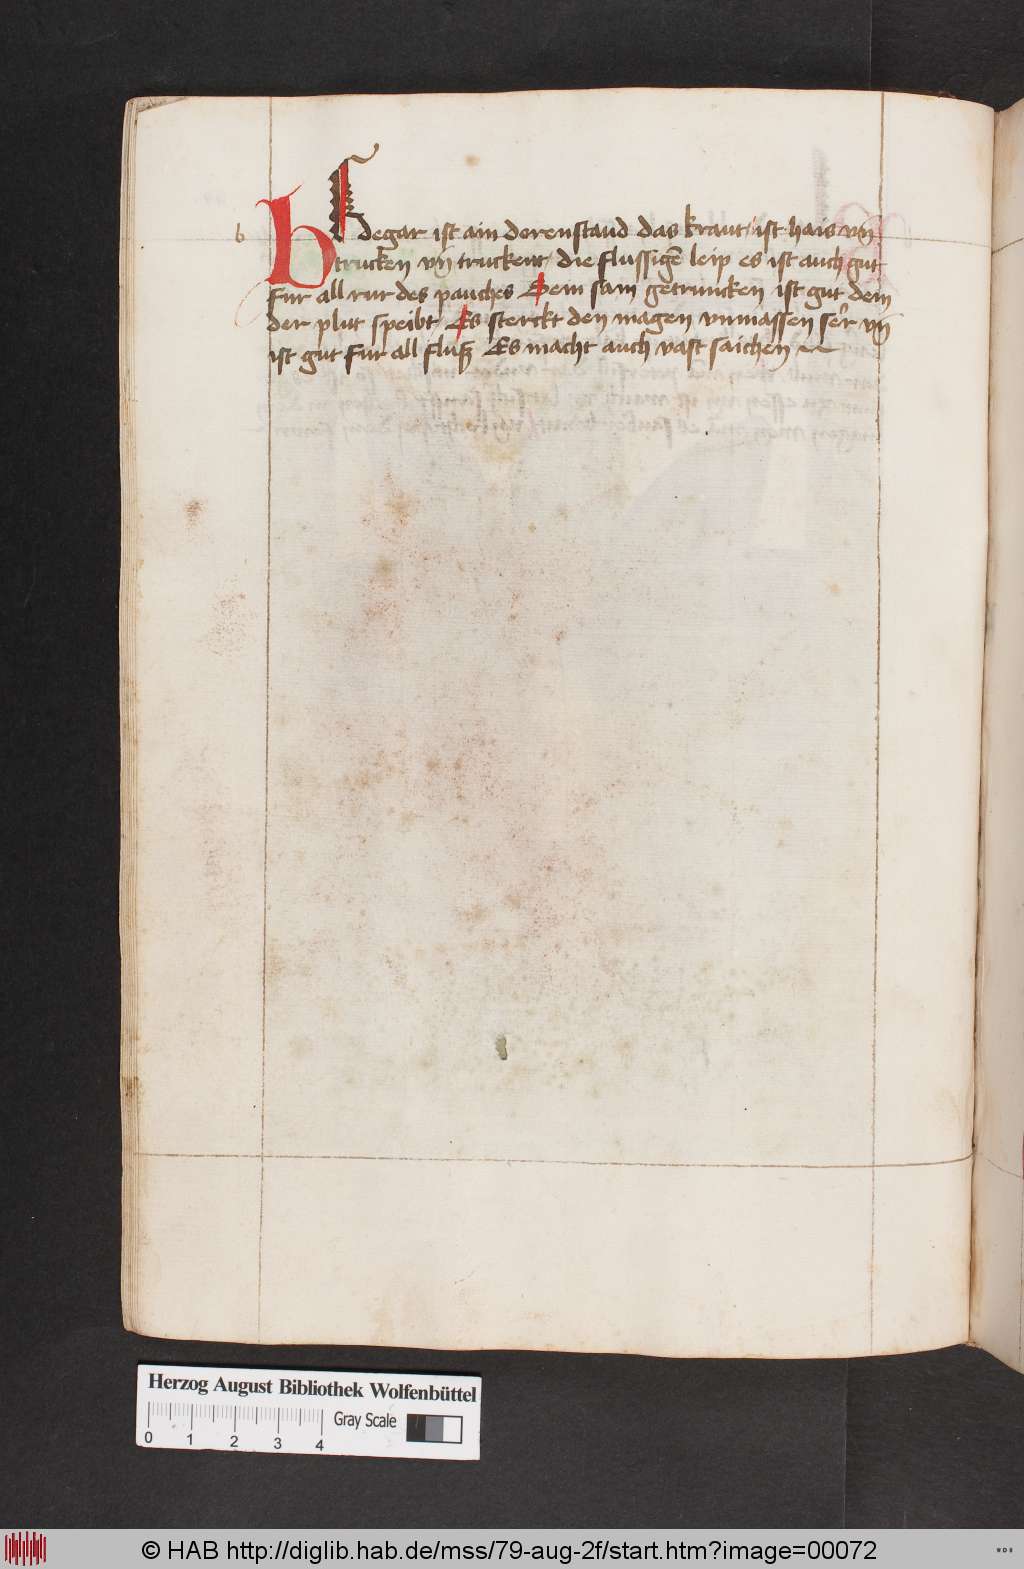 b
Bedegar ist ain dorenstaud das kraut ist hais vn̄
trucken vn̄ truckent die flussigē leip es ist auch gut
Fur all rur des pauches Dem sam getruncken ist gut dem
der plut speibt Es sterckt den magen vnmassen ser vn̄
ist gut Fur all fluß Es macht auch vast saichen
Herzog August Bibliothek Wolfenbüttel
Gray Scale
0 1 2 3 4
© HAB http://diglib.hab.de/mss/79-aug-2f/start.htm?image=00072